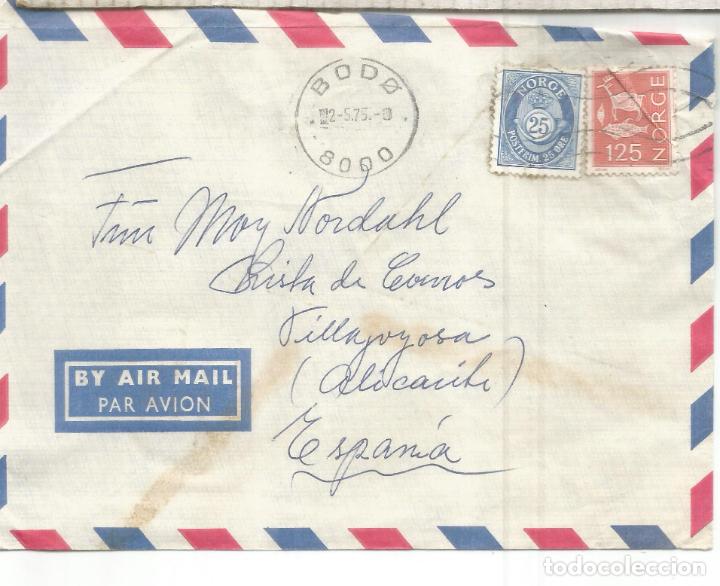 BODØ
2-5.75.-
8000
NORGE
25
POSTFRIM. 25 ØRE
125 NORGE
May Nordahl
de
Villajoyosa
(Alicante)
España
BY AIR MAIL
PAR AVION
todocoleccion